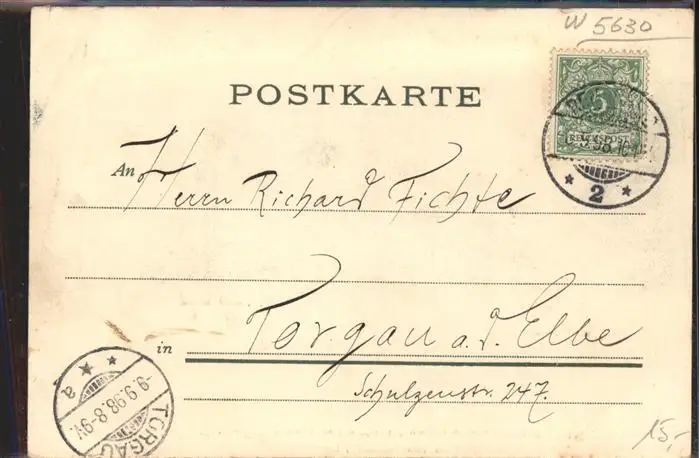 W 5630
POSTKARTE
5
REICHSPOST
9.98
2
An Herrn Richard Fichte
in Torgau a. d. Elbe
Schulzenstr. 247.
TORGAU
-9.9.98.8-9V.
a
15,-